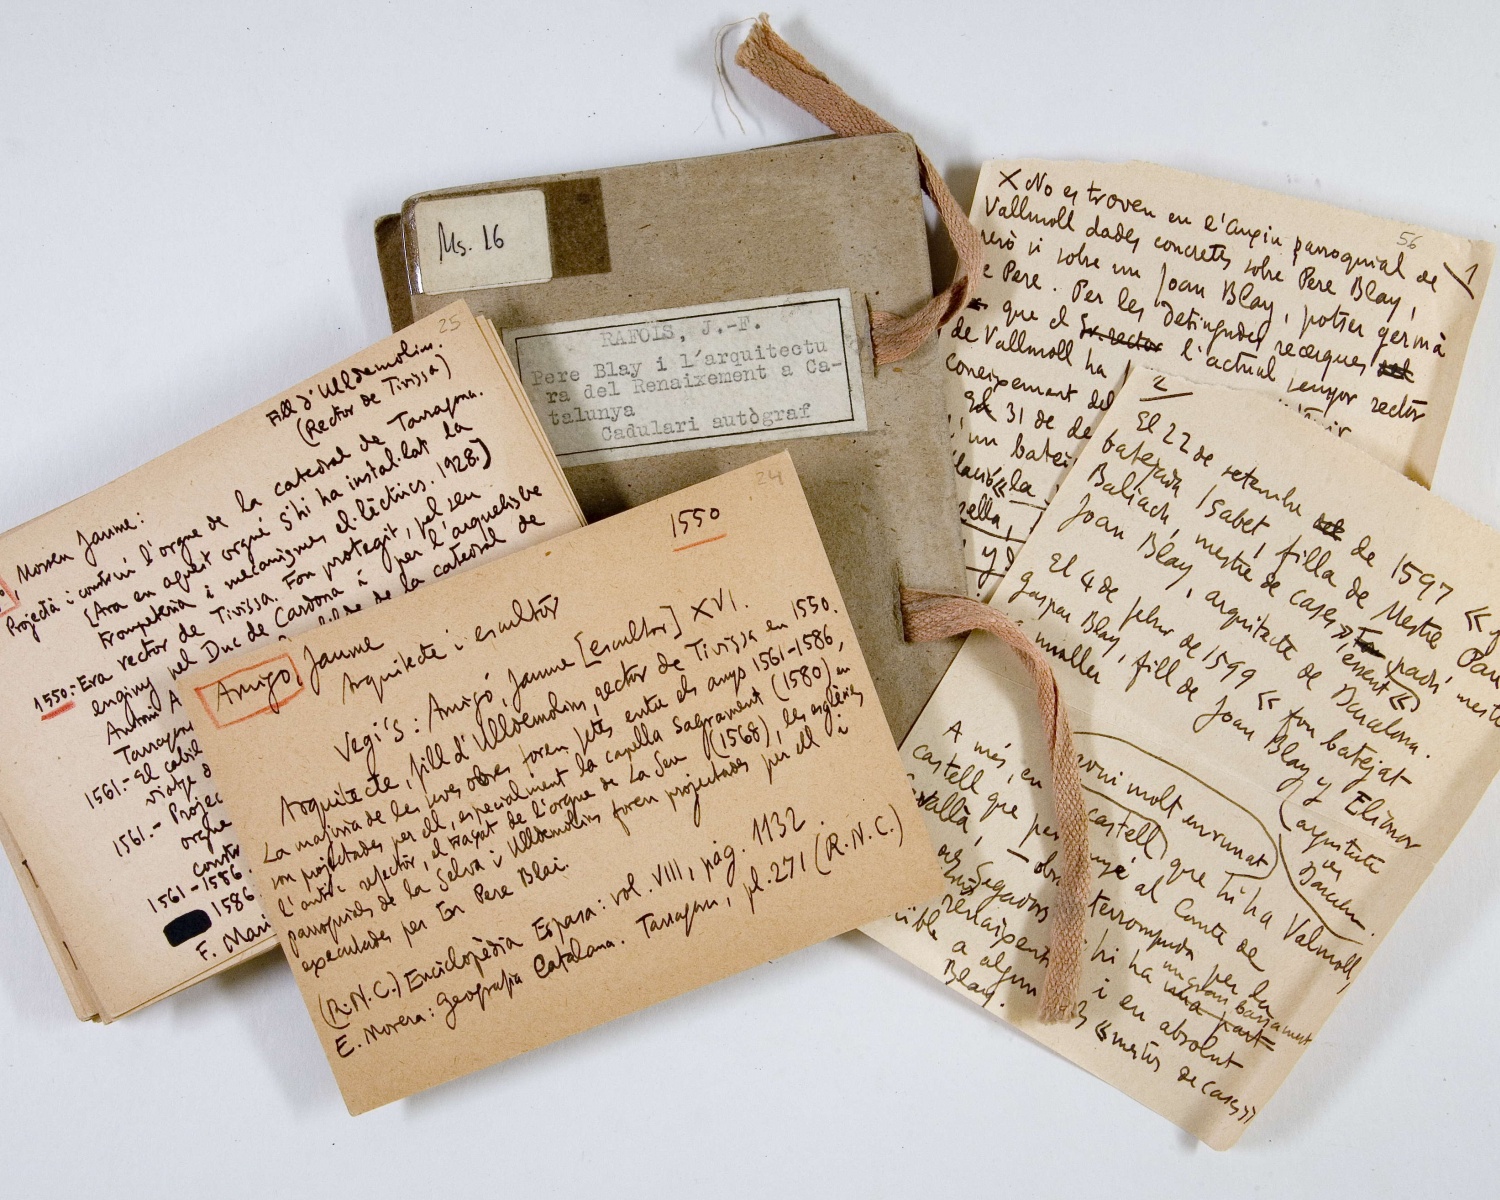 Ms. 16
RAFOLS, J.-F.
Pere Blay i l'arquitectu
ra del Renaixement a Ca-
talunya
Cadulari autògraf
25
Fill d'Ulldemolins.
(Rector de Tivissa)
, Mossen Jaume:
Projectà i construí l'orgue de la catedral de Tarragona.
[Ara en aquest orgue s'hi ha instal·lat la
trompeteria i mecanismes el·lèctrics. 1928.)
1550:- Era rector de Tivissa. Fou protegit, pel seu
enginy pel Duc de Cardona i per l'arquebisbe
Antoni A
la catedral de
Tarragona
1561.- El cabil
viatge
1561.- Projec
orgue
constr
1561-1586.
1586.
F. Mari
24
1550
Amigó, Jaume
Arquitecte i escultor
Vegi's: Amigó, Jaume [escultor] XVI.
Arquitecte, fill d'Ulldemolins, rector de Tivissa en 1550.
La majoria de les seves obres foren fetes entre els anys 1561-1586,
son projectades per ell, especialment la capella Sagrament (1580) en
l'antic refector, el traçat de l'orgue de La Seu (1568), les esglésies
parroquials de la Selva i Ulldemolins foren projectades per ell i
executades per En Pere Blai.
(R.N.C.) Enciclopèdia Espasa: vol. VIII, pàg. 1132.
E. Morera: Geografia Catalana. Tarragona, pl. 271 (R.N.C.)
56
1
X No es troven en l'arxiu parroquial de
Vallmoll dades concretes sobre Pere Blay,
però si sobre un Joan Blay, potser germà
de Pere. Per les detingudes recerques
que el Ex-rector l'actual senyor rector
de Vallmoll ha
coneixement del
31 de de
un batei
la
sella,
y
2
El 22 de setembre de 1597 «
batejada Isabet, filla de Mestre Pau
Baliach, mestre de cases», essent padrí mestre
Joan Blay, arquitecte de Barcelona.
El 4 de febrer de 1599 «fou batejat
Gaspar Blay, fill de Joan Blay y Elionor
muller (arquitecte
de Barcelona.
A més, en
molt enrunat
castell que per
castell que hi ha Valmoll,
al Comte de
obra
Segadors
terrompuda per la
hi ha un gran basament
una part
a algun i en absolut
Blay. «mestres de cases»